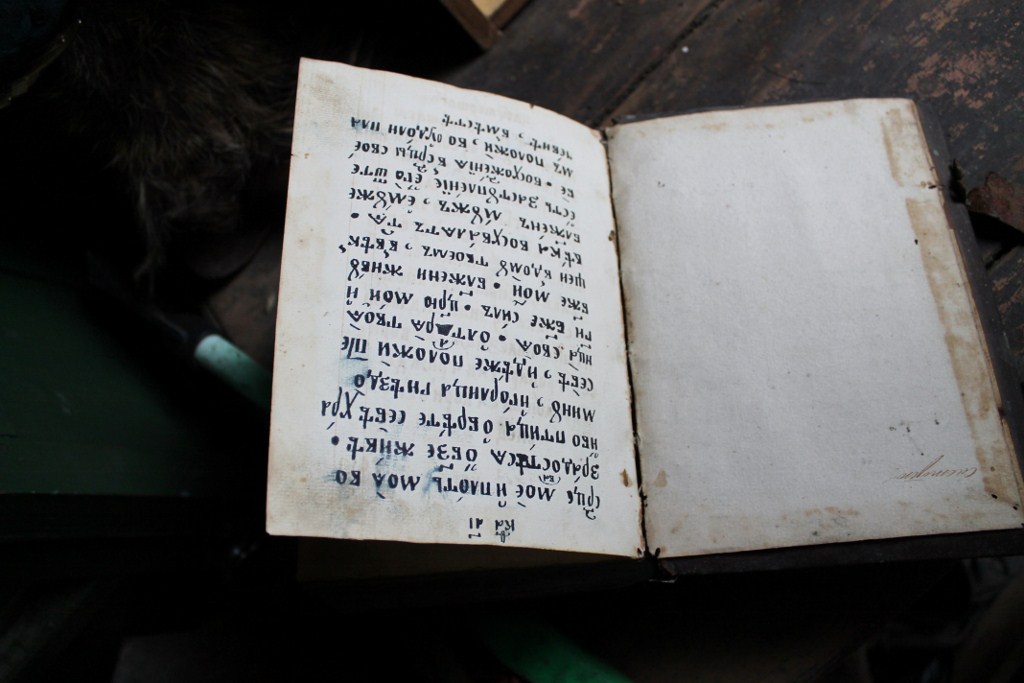 срⷣце моѐ и҆ пло́ть моѧ̀ во
зра́достⷡасѧ ѡ҆ бз҃ѣ жи́вѣ •
ибо пти́ца ѡ҆брѣ́те себѣ̀ хра́
минꙋ , и҆го́рлица гнѣздо̀
себѣ̀ , и҆дѣ́же положѝ пте
нца̀ своѧ̀ • ѻ҆лтарѧ̀ твоѧ̀
гд҃и бж҃е силъ • цр҃ю мо́й и҆
бж҃е мо́й • блаже́ни живꙋ́
щеи вдомꙋ̀ твоемъ , ввѣ́к
вѣ́ка восхвалѧтъ тѧ̀ •
блаже́нъ мꙋжъ , є҆мꙋ́же
є҆сть застꙋпле́нїе є҆го̀ ѿте
бѐ • восхожде́нїѧ всрⷣцы свое́
мъ положѝ , во ꙋдо́ли пла
че́внѣ , вмѣ́стѣ